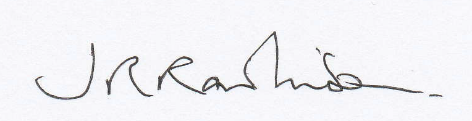 J R Rawlinson